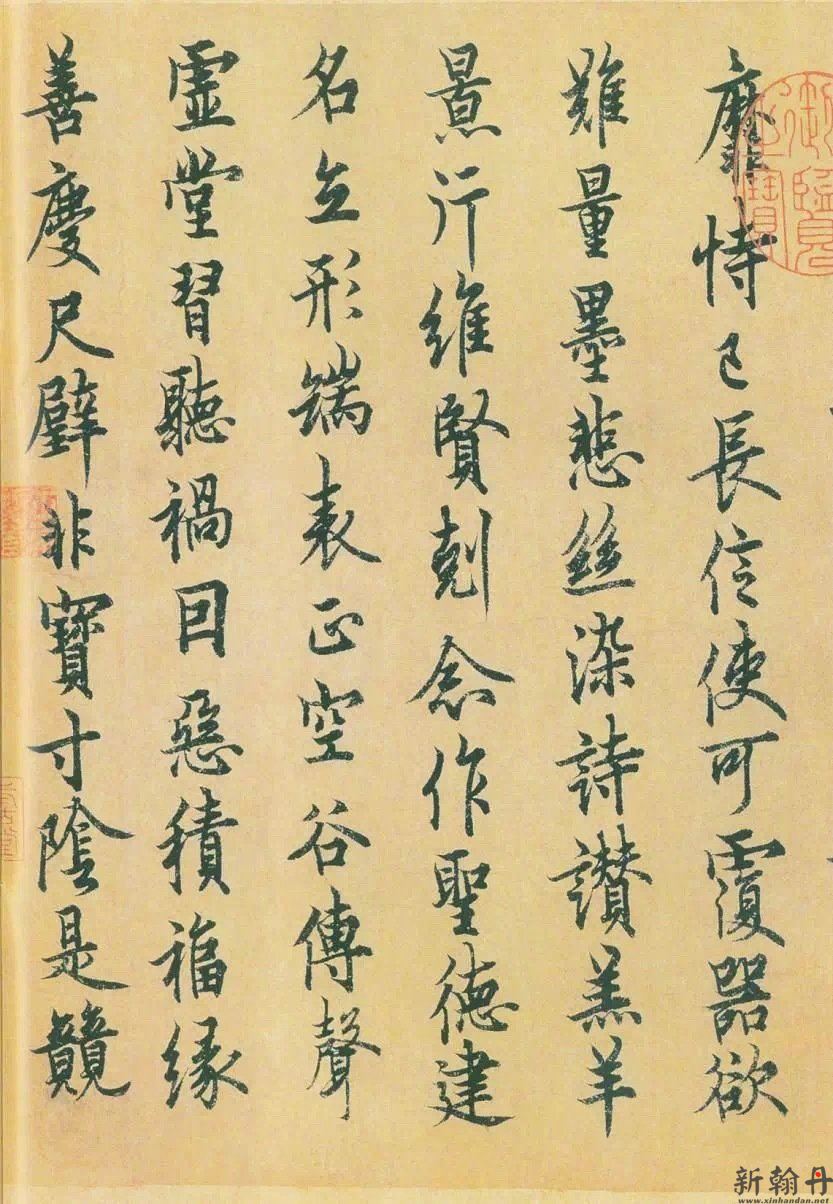 靡恃己長信使可覆器欲
難量墨悲絲染詩讃羔羊
景行維賢剋念作聖德建
名立形端表正空谷傳聲
虛堂習聽禍因惡積福緣
善慶尺璧非寶寸陰是競
御覽之寶
新翰丹
www.xinhandan.net